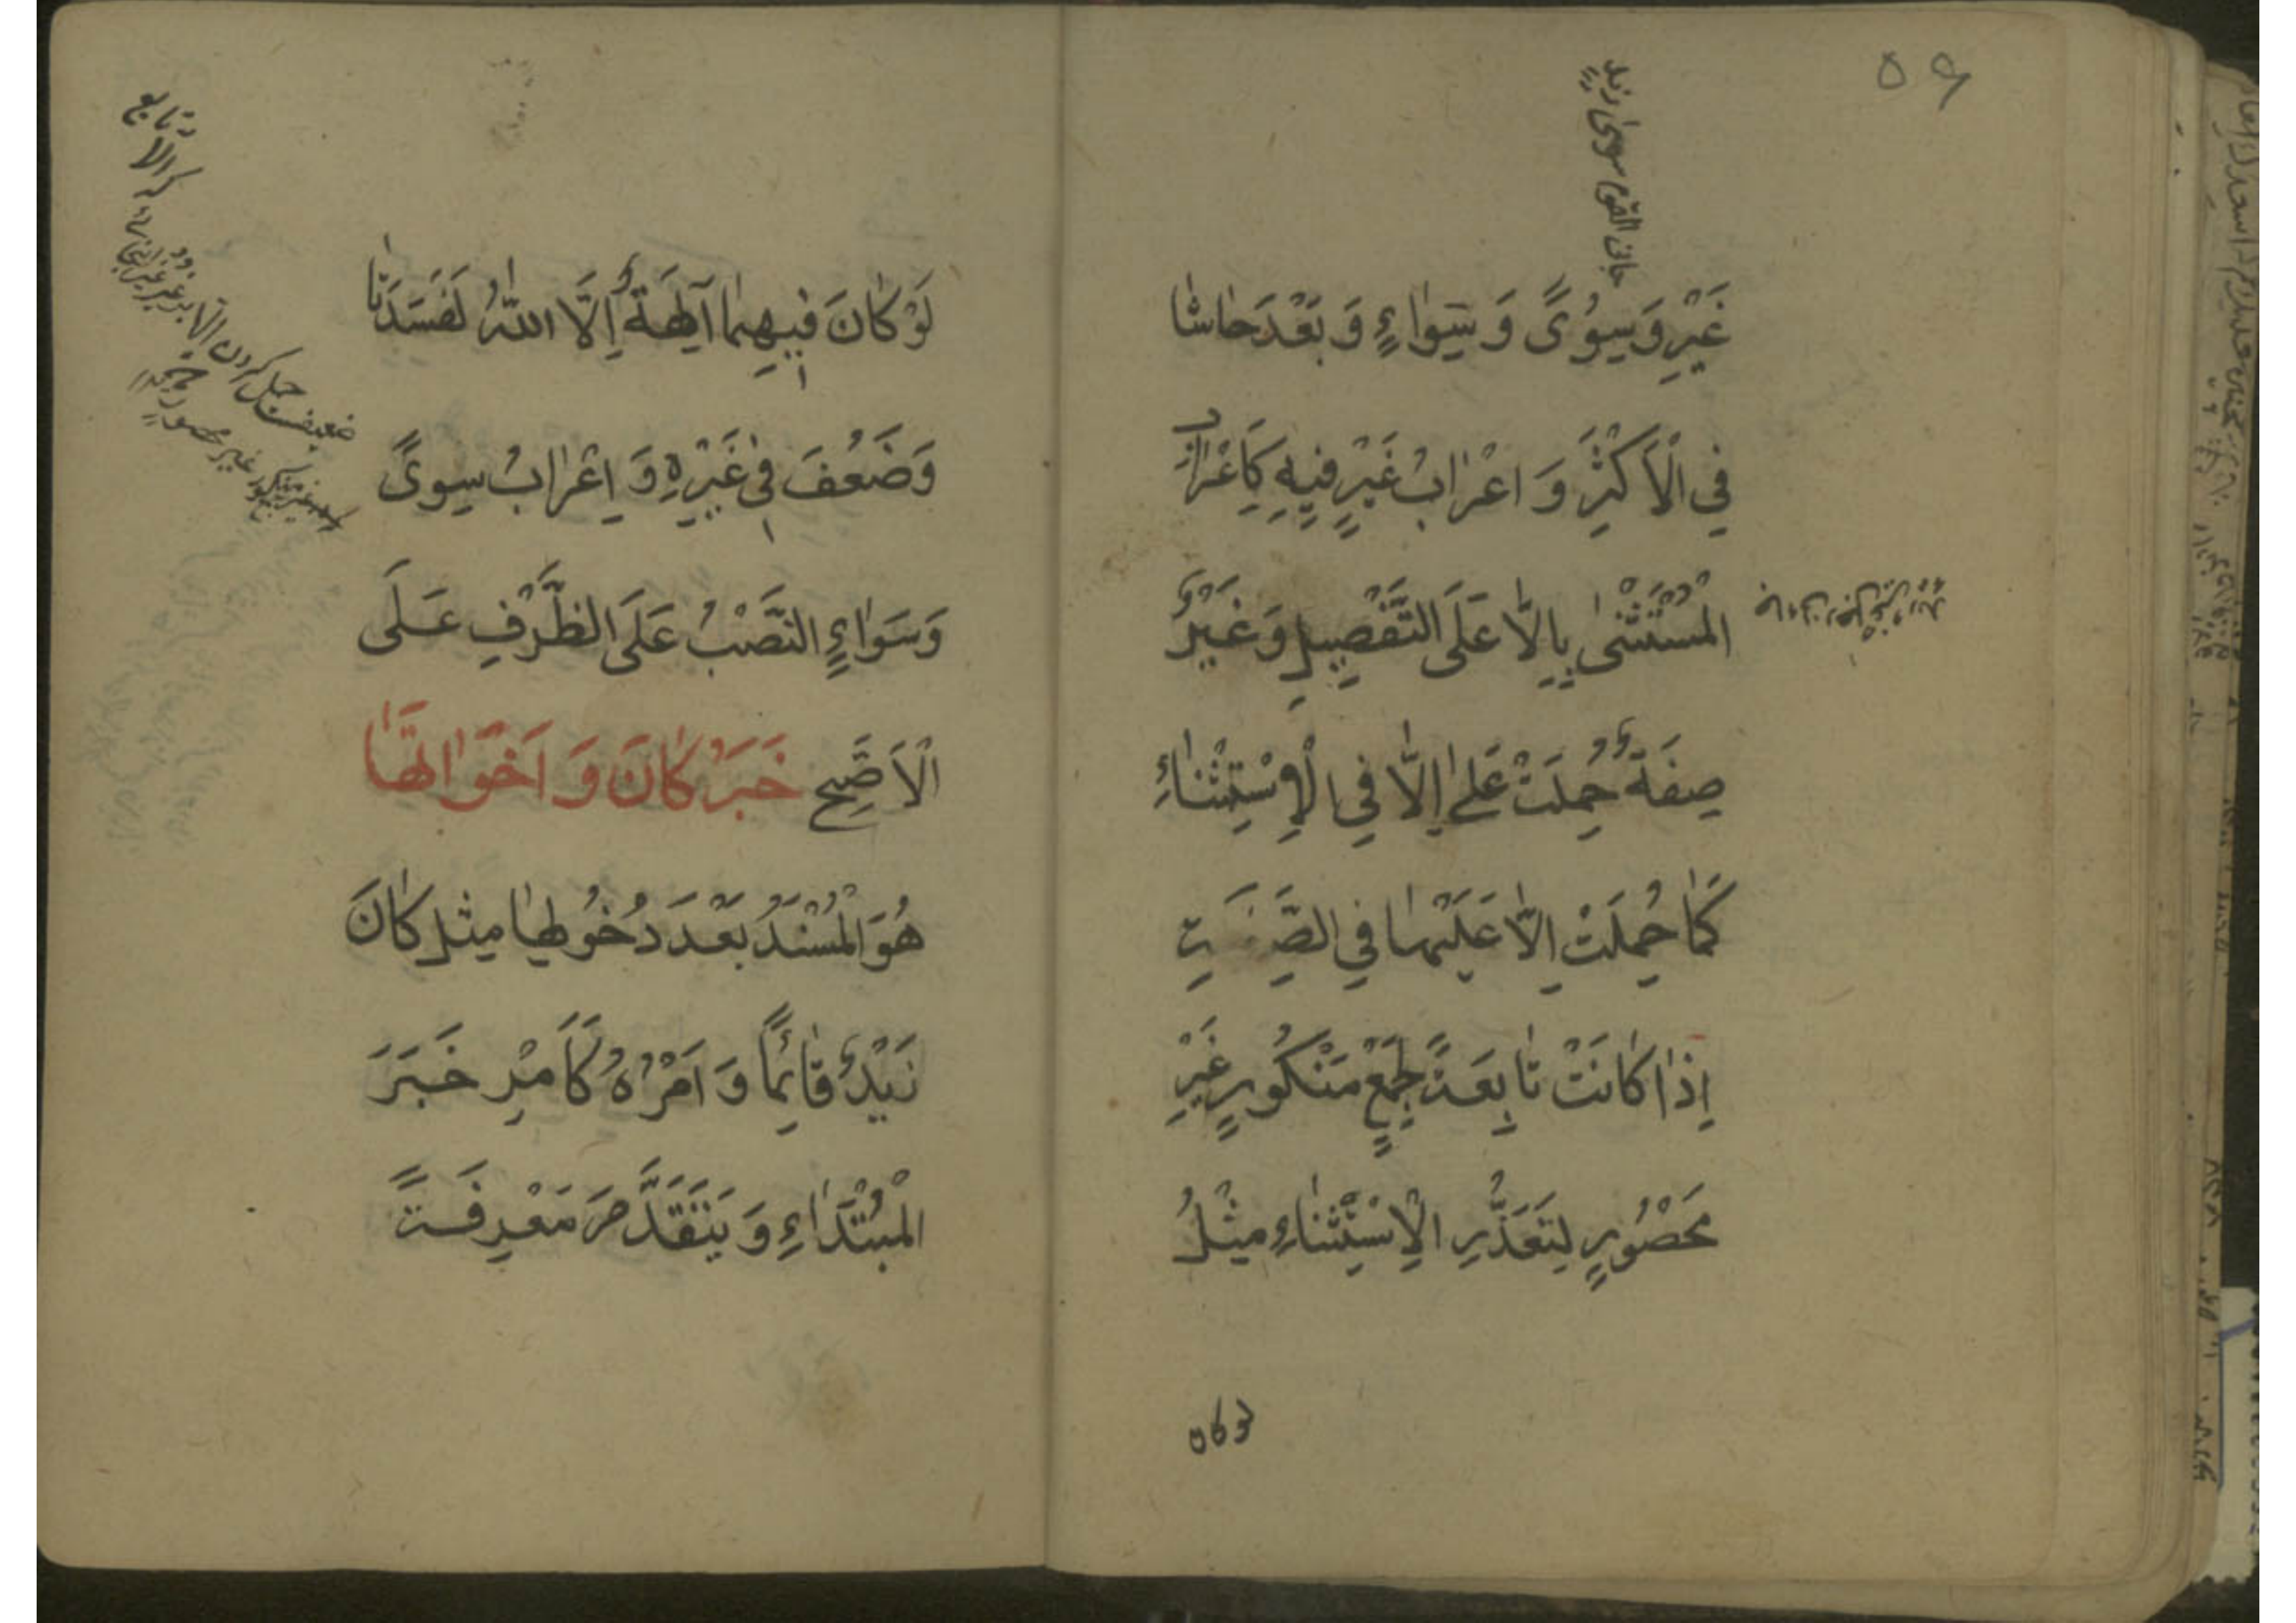 ۵۶
جائنی القوم سوی زیدٍ
غَيْرِ وَ سِوُىً وَ سَِوٰاءٍ وَ بَعْدَ حٰاشٰا
فِي الْأَكْثَرِ وَ اعْرٰابُ غَيْرٍ فِيهِ كَاِعْرٰابِ
الْمُسْتَثْنىٰ بِاِلّٰا عَلَى التَّفْصِيلِ وَ غَيْرُ
صِفَةٌ حُمِلَتْ عَلىٰ اِلّٰا فِي الْاِسْتِثْنٰاءِ
كَمٰا حُمِلَتْ اِلّٰا عَلَيْهٰا فِي الصِّفَةِ
اِذٰا كٰانَتْ تٰابِعَةً لِجَمْعٍ مَنْكُورٍ غَيْرِ
مَحْصُورٍ لِتَعَذُّرِ الْاِسْتِثْنٰاءِ مِثْلُ
لوکان
لَوْ كٰانَ فِيهِمٰا آلِهَةٌ اِلَّا اللّٰهُ لَفَسَدَتٰا
وَ ضَعُفَ فِي غَيْرِهِ وَ اِعْرٰابُ سِوىً
وَ سَوٰاءٍ النَّصْبُ عَلَى الظَّرْفِ عَلَى
الْاَصَّحِ خَبَرُ كٰانَ وَ اَخَوٰاتِهٰا
هُوَ الْمُسْنَدُ بَعْدَ دُخُولِهٰا مِثْل كٰانَ
زَيْدٌ قٰائِمًا وَ اَمْرُهُ كَاَمْرِ خَبَرَ
الْمُبْتَدٰاءِ وَ يَتَقَدَّمَ مَعْرِفَةً